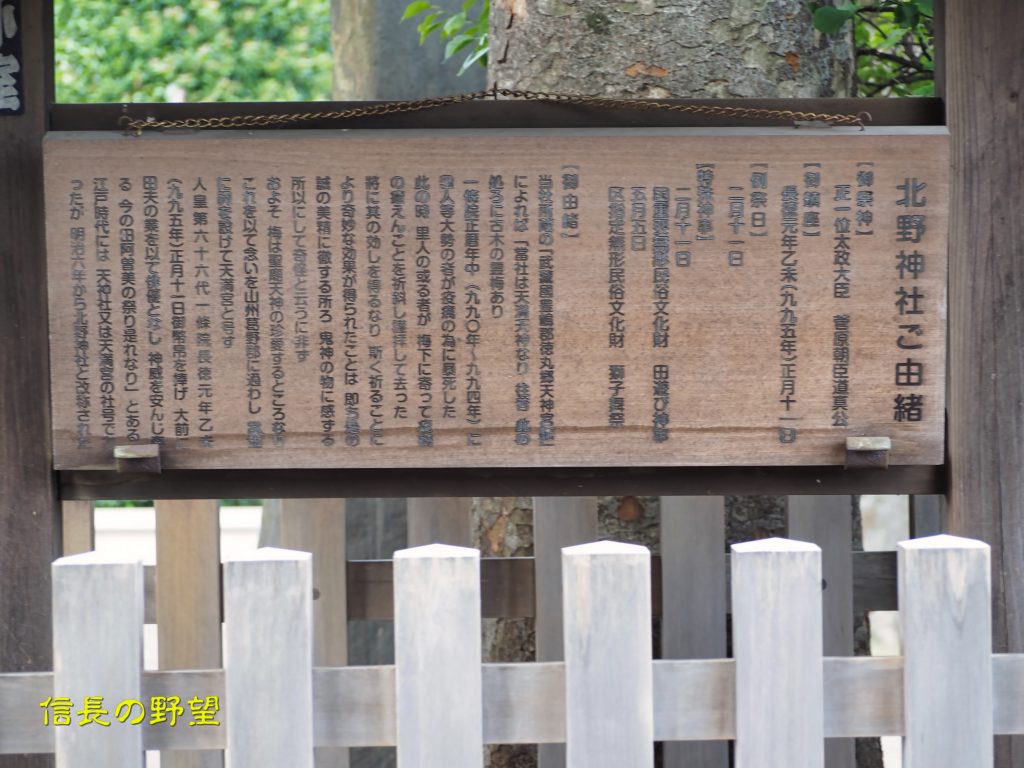 北野神社ご由緒
【御祭神】
正一位太政大臣　菅原朝臣道真公
【御鎮座】
長徳元年乙未(九九五年)正月十一日
【例祭日】
二月十一日
【特殊神事】
二月十一日
国重要無形民俗文化財　田遊び神事
五月五日
区指定無形民俗文化財　獅子舞祭
【御由緒】
当社所蔵の「武蔵国豊嶋郡徳丸郷天神宮
によれば「當社は天満天神なり 往昔 此の
処に古木の霊梅あり
一條院正暦年中(九九〇年～九九四年)に
里人等大勢の者が疫病の為に悪死した
此の時 里人の或る者が 梅下に寄って
の癒えんことを祈斜し謹拝して去った
將に其の効しを得るなり 斯く祈ることに
より奇妙な効果が得られたことは 即ち
誠の美精に徹する所ろ 鬼神の物に感ずる
所以にして奇怪と云うに非ず
およそ 梅は聖廟天神の珍愛するところなり
これを以て念いを山州葛野郡に過わし
に祠を設けて天満宮と号す
人皇第六十六代一條院長徳元年乙未
(九九五年)正月十一日御幣帛を捧げ 大前に
田夫の業を以て俳優となし 神威を安んじ
る 今の田阿曽美の祭り是れなり」とある
江戸時代には 天神社又は天満宮の社号で
ったが 明治六年から北野神社と改称された
信長の野望